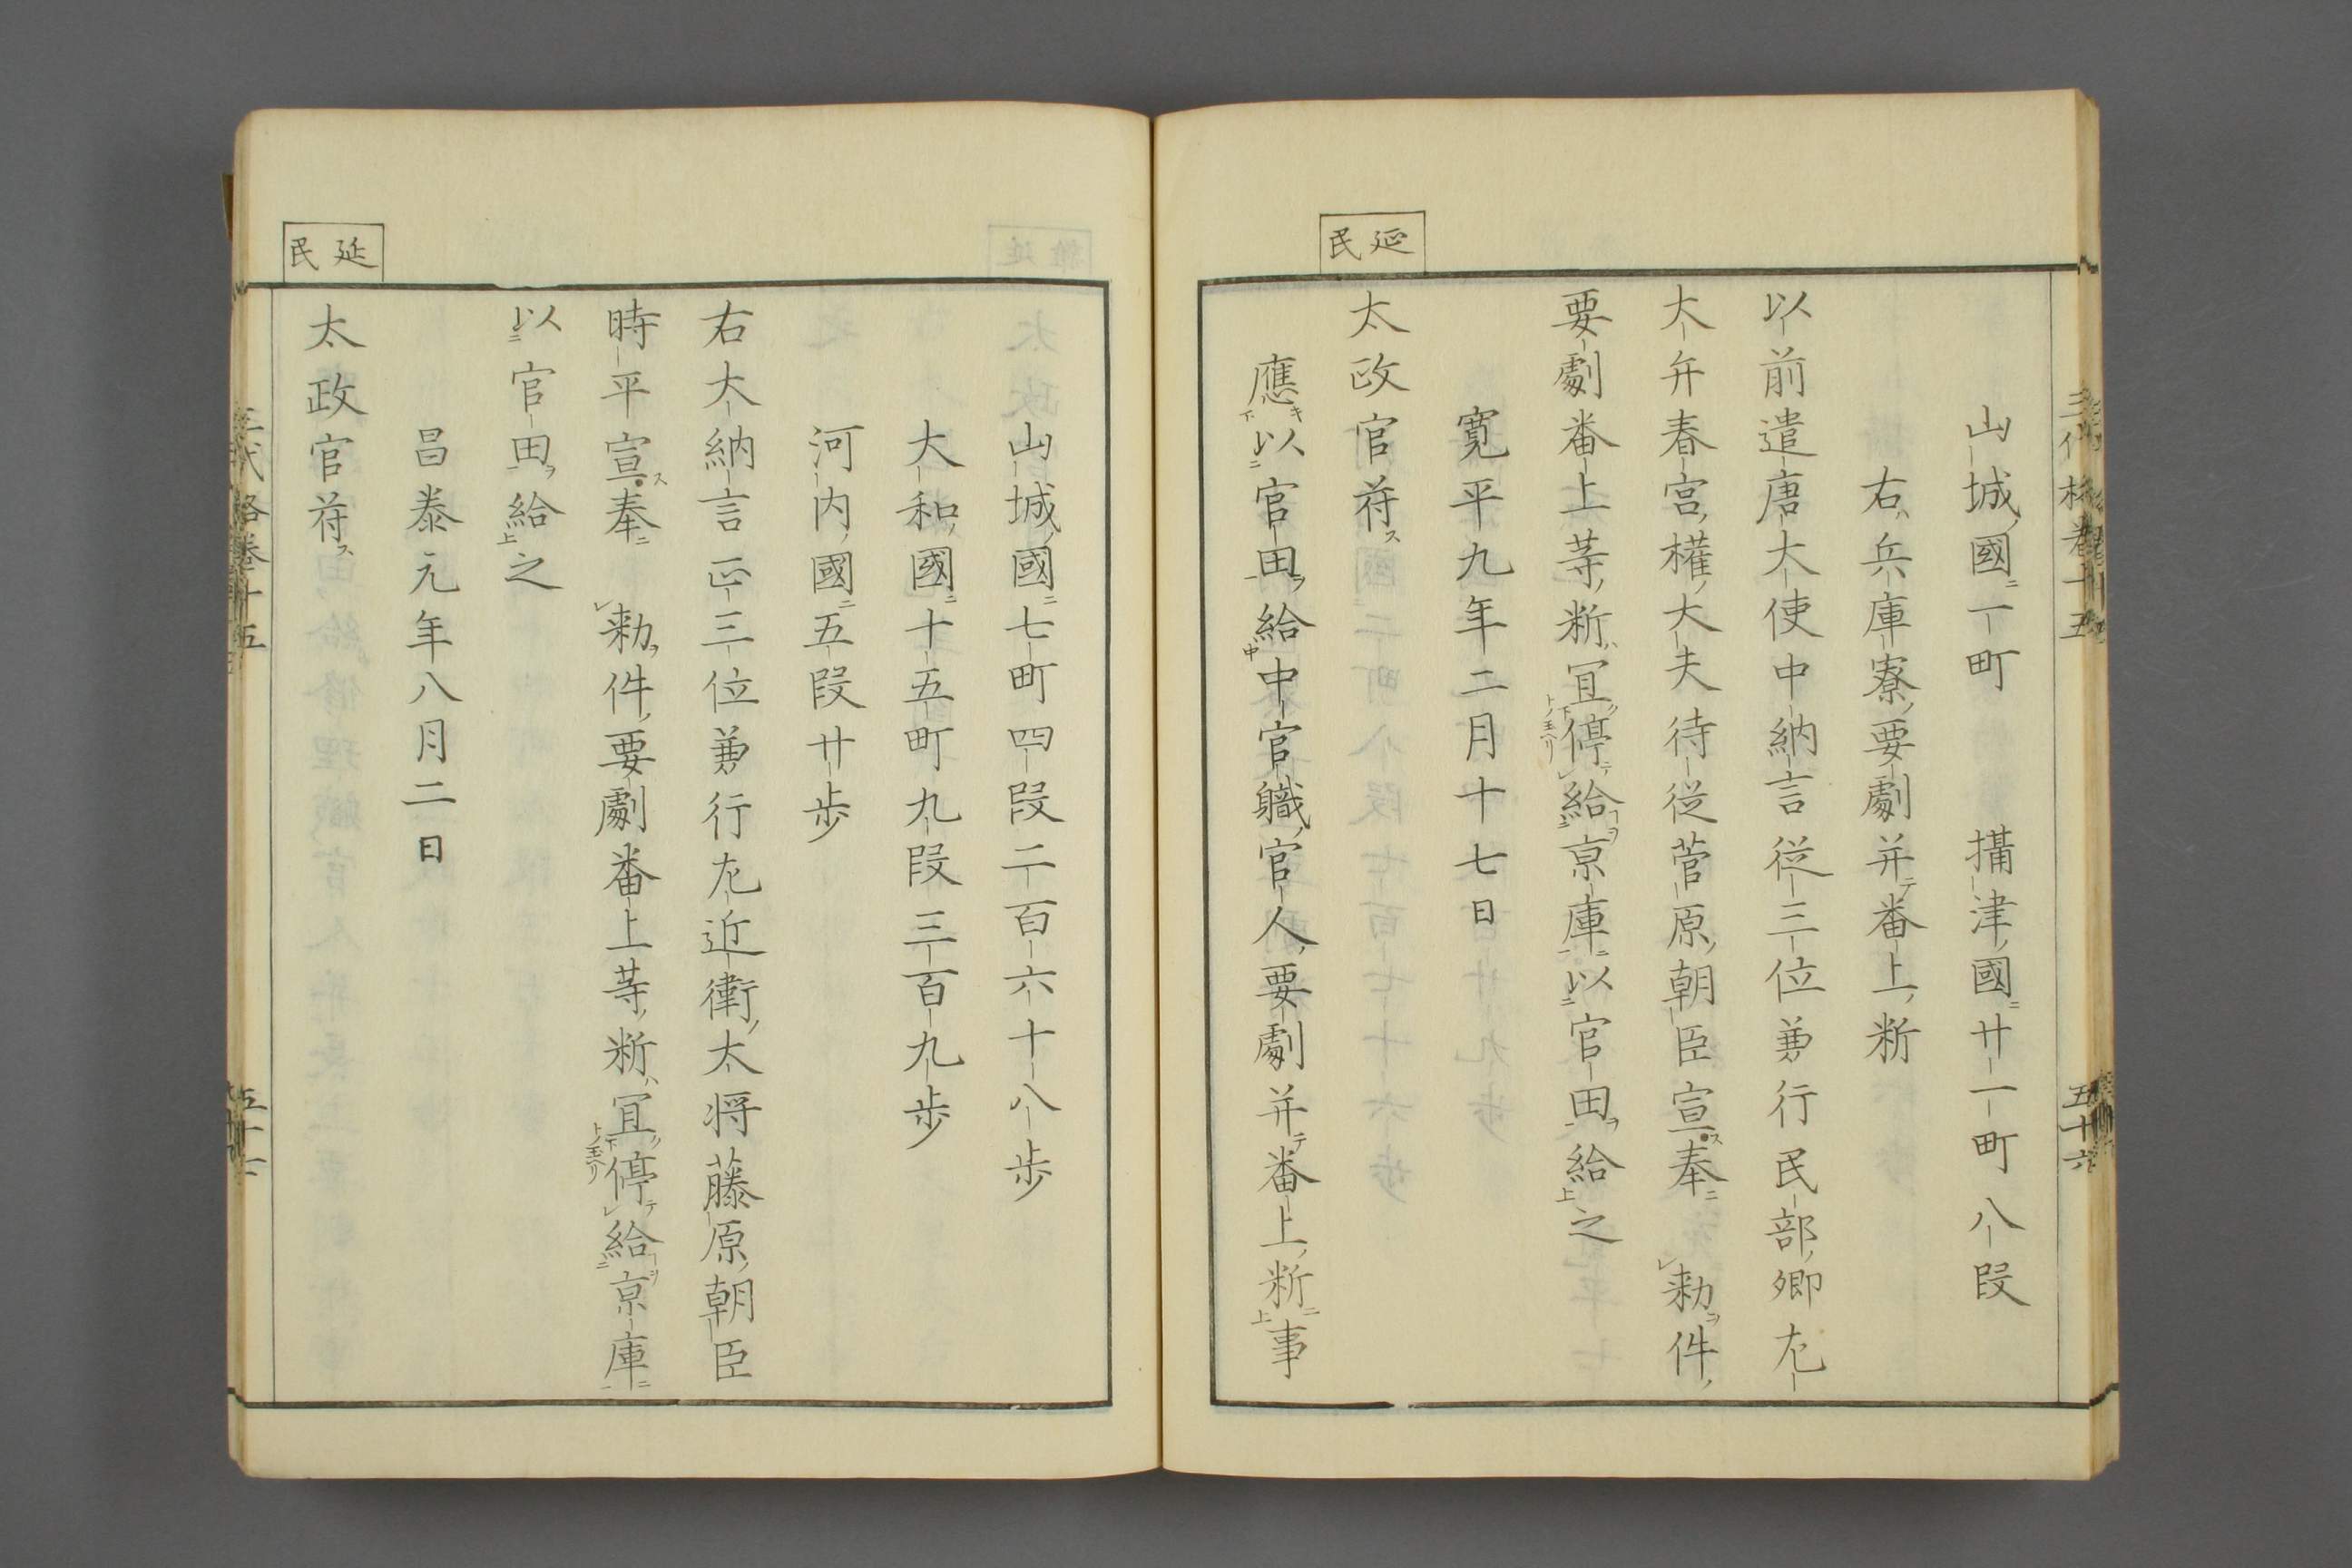 延民
山城國一町　攝津國廿一町八段
右兵庫寮要劇并番上断
以前遣唐大使中納言従三位兼行民部卿左
大弁春宮權大夫侍従菅原朝臣宣奉　勅件
要劇番上等断冝停給京庫以官田給之
寛平九年二月十七日
太政官符
應以官田給中官職官人要劇并番上断事
三代格巻十五
五十六
延民
山城國七町四段二百六十八歩
大和國十五町九段三百九歩
河内國五段廿歩
右大納言正三位兼行左近衛大将藤原朝臣
時平宣奉　勅件要劇番上等断冝停給京庫
以官田給之
昌泰元年八月二日
太政官符
三代格巻十五